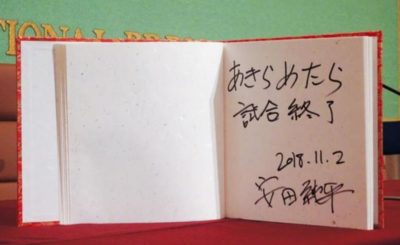 TIONAL PRESS
あきらめたら
試合終了
2018.11.2
安田純平